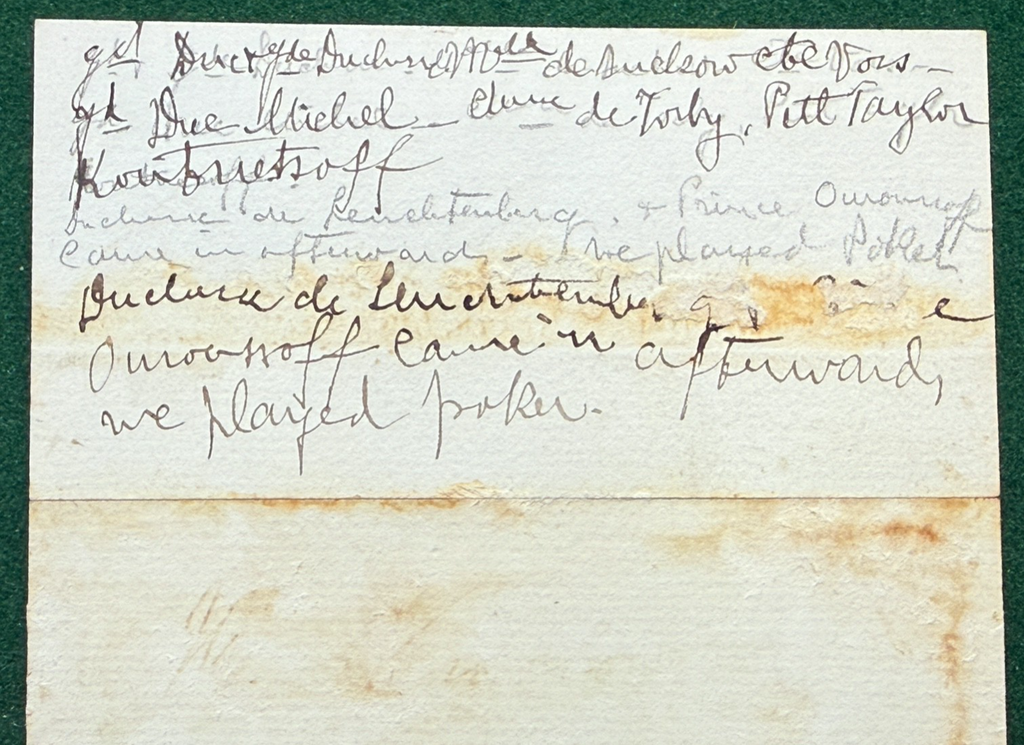 gd Duc, gde Duchesse Mlle de cte Voss -
gd Duc Michel - de Torby, Pitt Taylor
Koutznetsoff
Duchesse de Leuchtenberg, & Prince Ouroussoff
came in afterwards - we played Poker
Duchesse de Leuchtenberg
Ouroussoff came in afterwards,
we played poker.